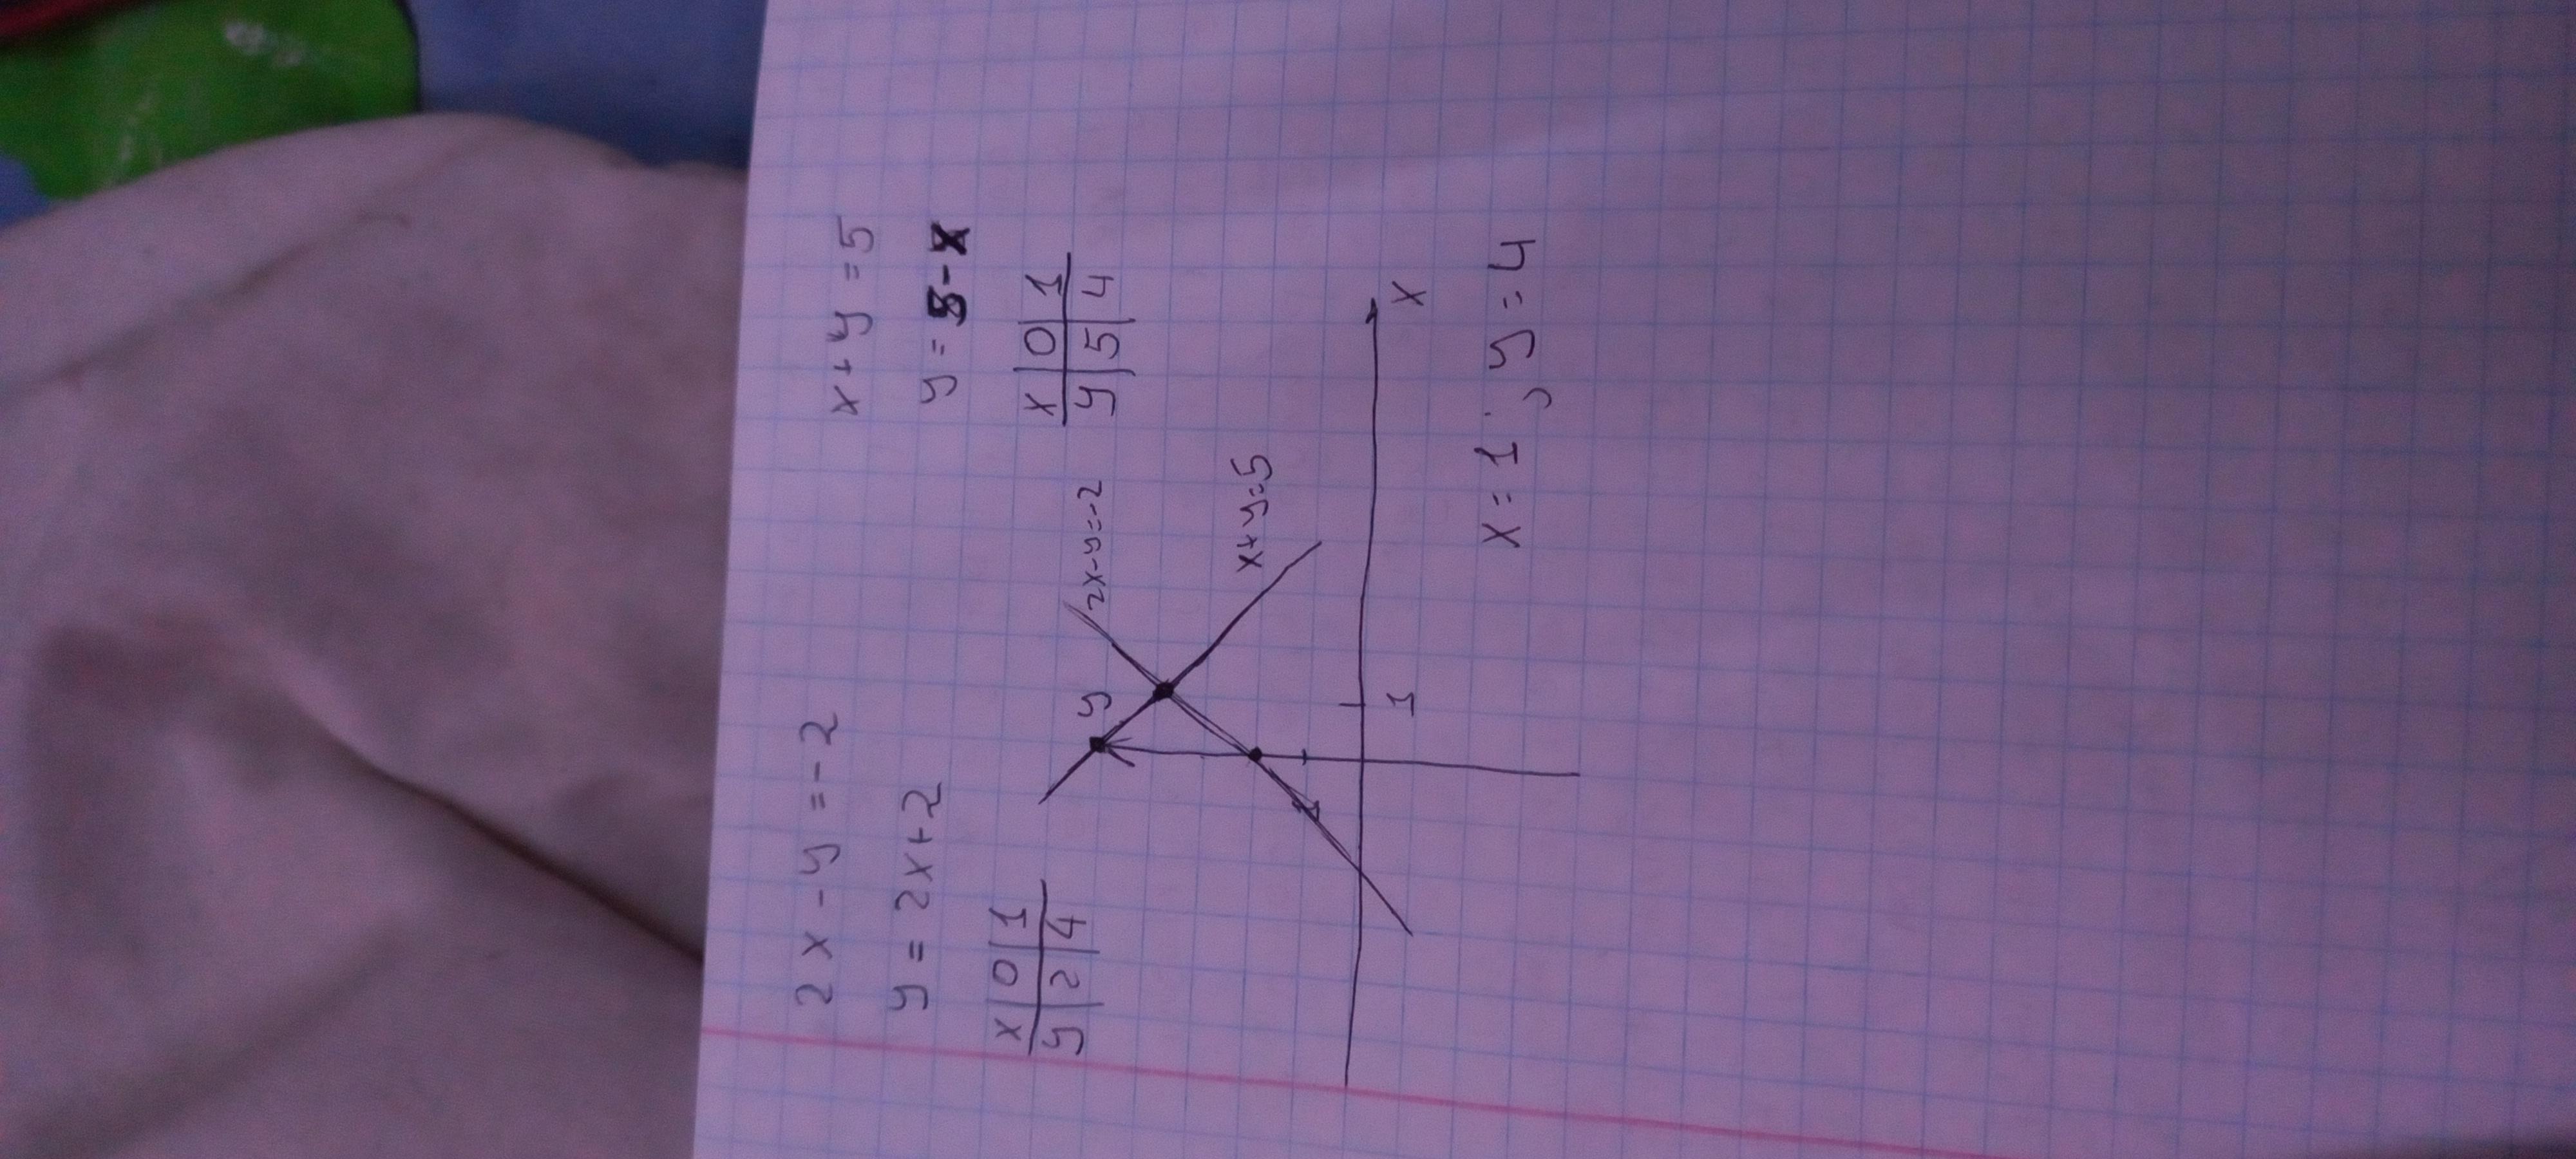 2x - y = -2
x + y = 5
y = 2x+2
y = 5-x
x | 0 | 1
y | 2 | 4
x | 0 | 1
y | 5 | 4
y
2x-y=-2
x+y=5
1
1
x
x = 1; y = 4